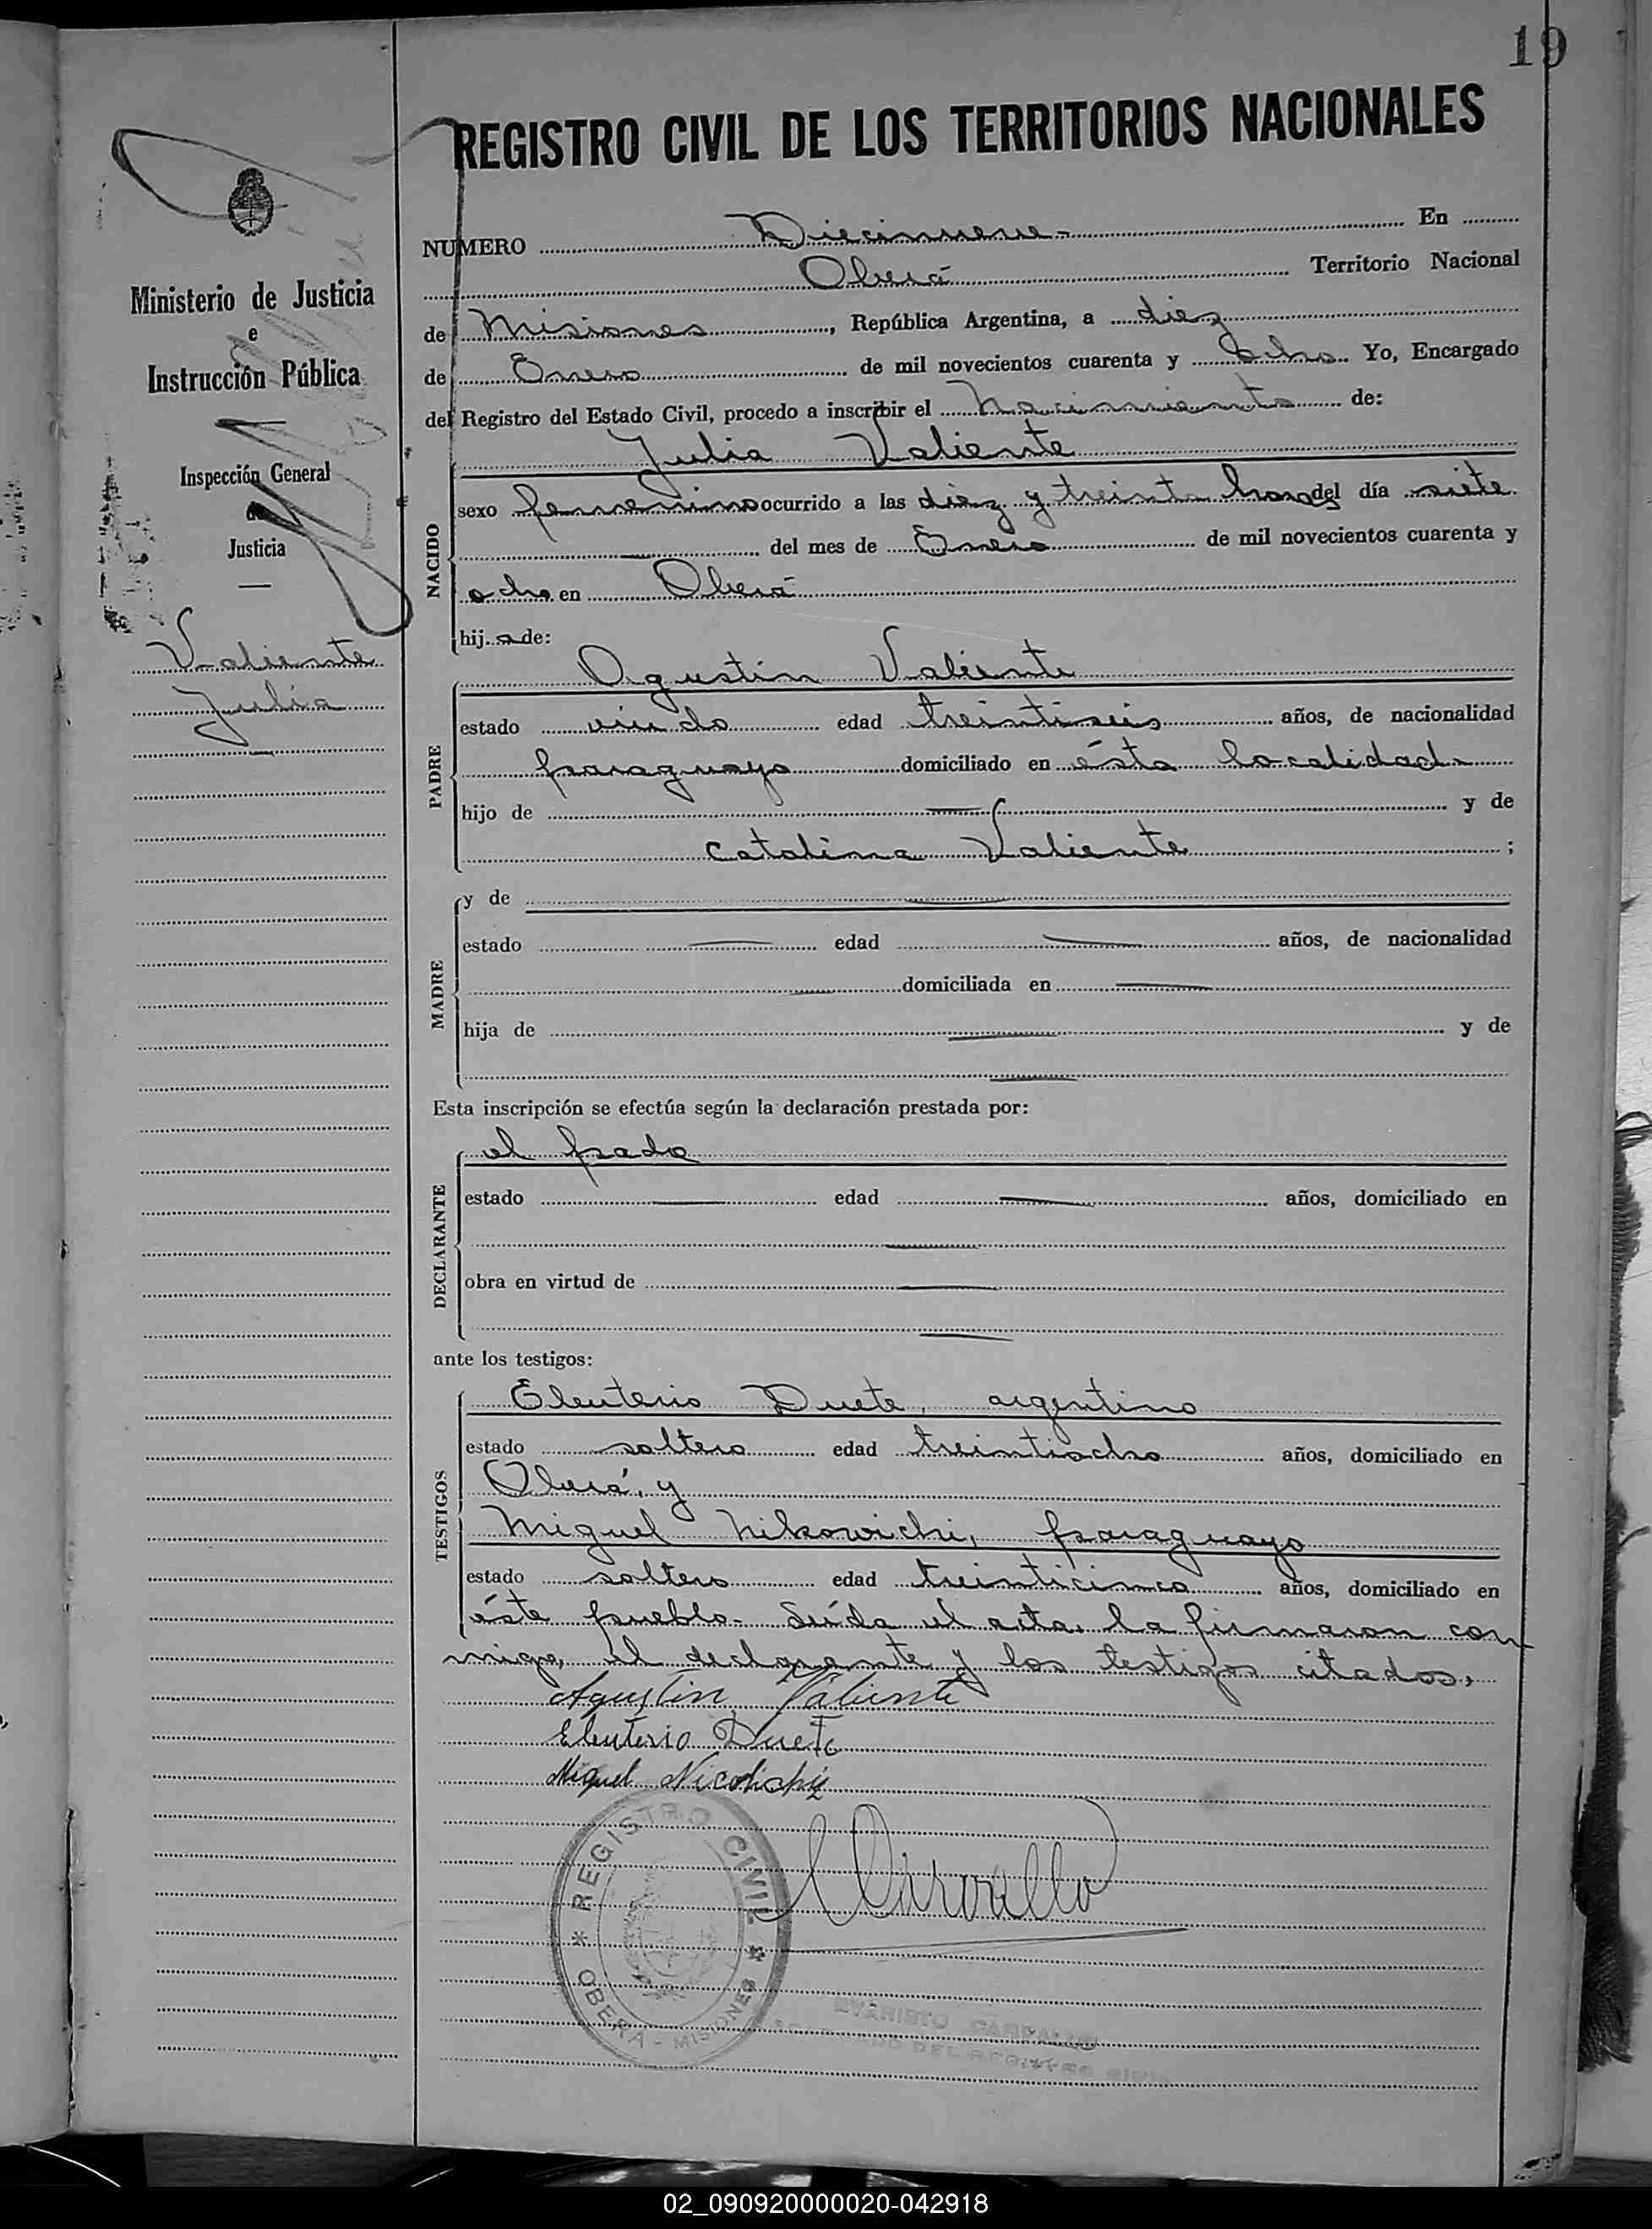 19
REGISTRO CIVIL DE LOS TERRITORIOS NACIONALES
Ministerio de Justicia
e
Instrucción Pública
Inspección General
de
Justicia
Valiente
Julia
NUMERO Diecinueve - En
Oberá Territorio Nacional
de Misiones, República Argentina, a diez
de Enero de mil novecientos cuarenta y ocho. Yo, Encargado
del Registro del Estado Civil, procedo a inscribir el Nacimiento de:
Julia Valiente
NACIDO
sexo femenino ocurrido a las diez y treinta horas del día siete
del mes de Enero de mil novecientos cuarenta y
ocho en Oberá
hija de:
Agustín Valiente
PADRE
estado viudo edad treintiseis años, de nacionalidad
paraguayo domiciliado en ésta localidad.
hijo de y de
Catalina Valiente ;
MADRE
y de
estado edad años, de nacionalidad
domiciliada en
hija de y de
Esta inscripción se efectúa según la declaración prestada por:
DECLARANTE
el padre
estado edad años, domiciliado en
obra en virtud de
ante los testigos:
TESTIGOS
Eleuterio Duete, argentino
estado soltero edad treintiocho años, domiciliado en
Oberá, y
Miguel Nikowichi, paraguayo
estado soltero edad treinticinco años, domiciliado en
éste pueblo - Leída el acta, la firmaron con
migo, el declarante y los testigos citados.
Agustin Valiente
Eleuterio Duete
Miguel
REGISTRO CIVIL
OBERÁ - MISIONES
EVARISTO
DEL REGISTRO CIVIL
02_090920000020-042918